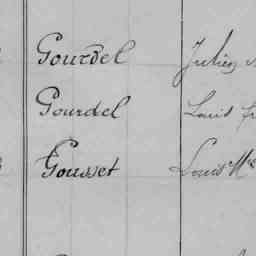 Gourdel Julien
Gourdel Louis
Gousset Louis Me